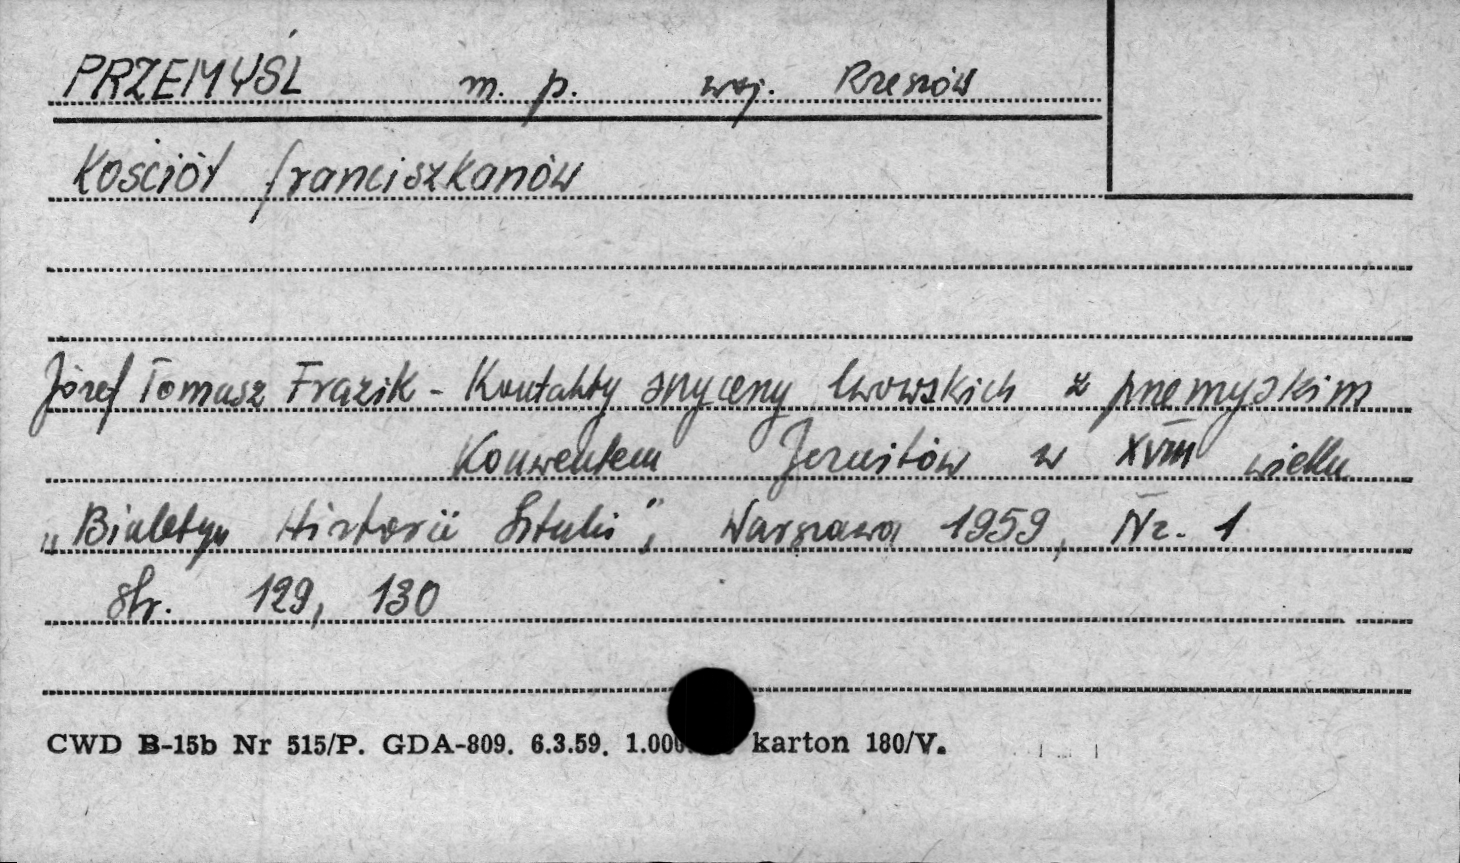 PRZEMYŚL m. p. woj. Rzeszów
Kościół franciszkanów
Józef Tomasz Frazik - Kontakty snycerzy lwowskich z przemyskim
Konwentem Jezuitów w XVIII wieku
„Biuletyn Historii Sztuki", Warszawa 1959, Nr. 1
str. 129, 130
CWD B-15b Nr 515/P. GDA-809. 6.3.59. karton 180/V.